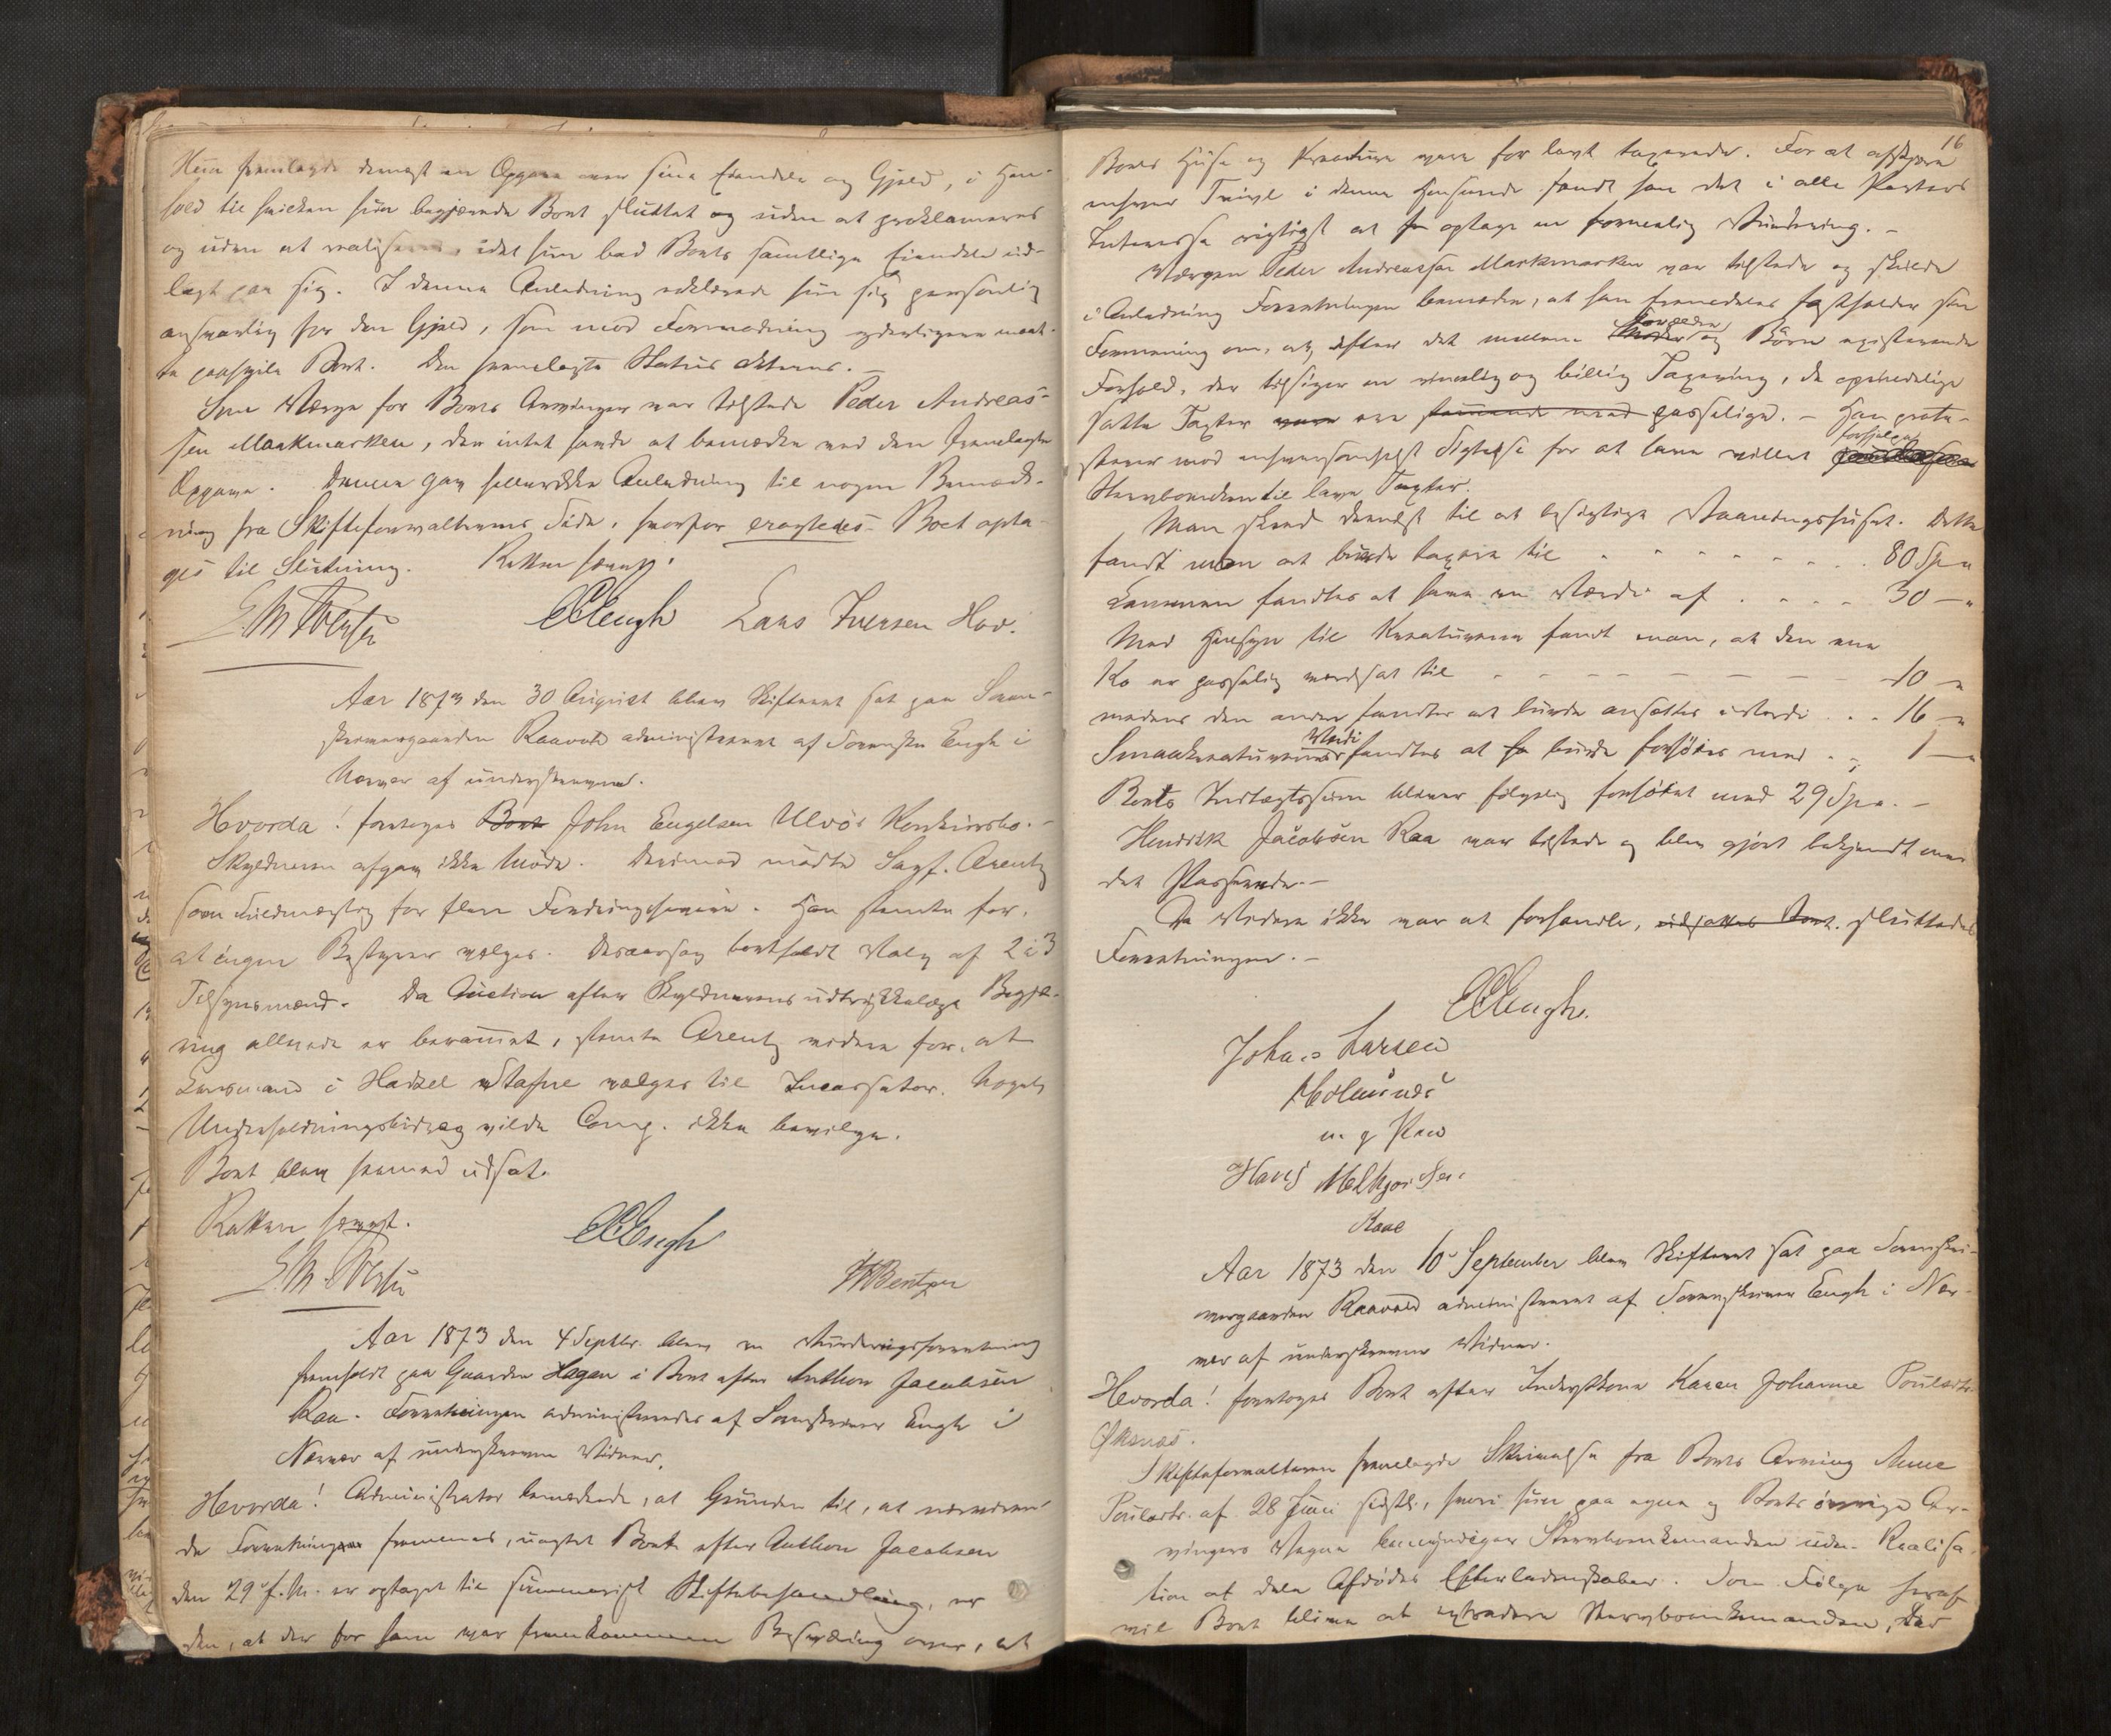 Hun fremlagde dernæst en Opgave over sine Eiendele og Gjæld, i Hen-
hold til hvilken hun begjærede Boet sluttet og uden at proklameres
og uden at realiseres, idet hun bad Boets samtlige Eiendele ud-
lagt paa sig. I denne Anledning erklærede hun sig personlig
ansvarlig for den Gjæld, som mod Formodning yderligere maat-
te paahvile Boet. Den fremlagte Status akteres. –
Som Værge for Boets Arvinger var tilstede Peder Andreas-
sen Markmarken, der intet havde at bemærke ved den fremlagte
Opgave. Denne gav hellerikke Anledning til nogen Bemærk-
ning fra Skifteforvalterens Side, hvorfor eragtedes Boet opta-
ges til Slutning. Retten hævet.
CCEngh Lars Iversen Hov.
Aar 1873 den 30 August blev Skifteret sat paa Soren-
skrivergaarden Raavold administreret af Sorenskr Engh i
Nærvær af underskrevne.
Hvorda! foretoges Boet John Engelsen Ulvös Konkursbo. –
Skyldneren afgav ikke Møde. Derimod mødte Sagf. Arentz
som Fuldmægtig for flere Fordringshavere. Han stemte for,
at ingen Bestyrer vælges. Desaarsag bortfaldt Valg af 2 à 3
Tilsynsmænd. Da Auction efter Skyldnerens udtrykkelige Begjæ-
ring allerede er berammet, stemte Arentz videre for, at
Lensmand i Hadsel Stafne vælges til Incassator. Noget
Underholdningsbidrag vilde Comp. ikke bevilge.
Boet blev hermed udsat.
Retten hævet.
CCEngh
Bentzen
Aar 1873 den 4 Septbr. blev en Vurderingsforretning
fremholdt paa Gaarden Hagen i Boet efter Anthon Jacobsen
Raa. Forretningen administreredes af Sorenskriver Engh i
Nærvær af underskrevne Vidner.
Hvorda! Administrator bemærkede, at Grunden til, at nærværen-
de Forretning fremmes, uagtet Boet efter Anthon Jacobsen
den 29 f. M. er optaget til summarisk Skiftebehandling, er
den, at der for ham var fremkommen Besværing over, at
16
Boets Huse og Kreature vare for lavt taxerede. For at afskjære
enhver Tvivl i denne Henseende fandt han det i alle Parters
Interesse rigtigst at optage en formelig Vurdering. –
Værgen Peder Andreassen Markmarken var tilstede og skulde
i Anledning Forretningen bemærke, at han fremdeles fastholder sin
Formening om, at, efter det mellem Forælder og Børn existerende
Forhold, der tilsiger en rimelig og billig Taxering, de oprindelige
satte Taxter vare ere stemmende med passelige. – Han prote-
sterer mod enhversomhelst Sigtelse for at have villet forhjelpe
Stervboenken til lave Taxter.
Man skred dernæst til at besigtige Vaaningshuset. Dette
fandt man at burde taxere til . . . . . . . 80 Sp „
Lammen fandtes at have en Værdi af . . . . 30 – „
Med Hensyn til Kreaturene fandt man, at den ene
Ko er passelig værdsat til – – – – – – – 10 „
medens den anden fandtes at burde ansættes i Værdi . . . 16 – „
Smaakreaturenes Værdi fandtes at burde forhøies med . . 1 – „
Boets Indtægtssum bliver følgelig forhøiet med 29 Spd. –
Hendrik Jacobsen Raa var tilstede og blev gjort bekjendt med
det Passerede. –
Da Videre ikke var at forhandle, udsattes Boet. sluttedes
Forretningen. –
CCEngh.
Johan Larsen
Holmsnæs
m. p. Pen
Hans Melkjorsen
Raae
Aar 1873 den 10 September blev Skifteret sat paa Sorenskri-
vergaarden Raavold administreret af Sorenskriver Engh i Nær-
vær af underskrevne Vidner.
Hvorda! foretoges Boet efter Inderstkone Karen Johanne Poulsdtr.
Øksnæs.
Skifteforvalteren fremlagde Skrivelse fra Boets Arving Anne
Poulsdtr. af 28 Juni sidstl., hvori hun paa egne og Boets øvrige Ar-
vingers Vegne bemyndiger Stervboenkemanden uden Realisa-
tion at dele Afdødes Efterladenskaber. Som Følge heraf
vil Boet blive at extradere Stervboenkemanden, der